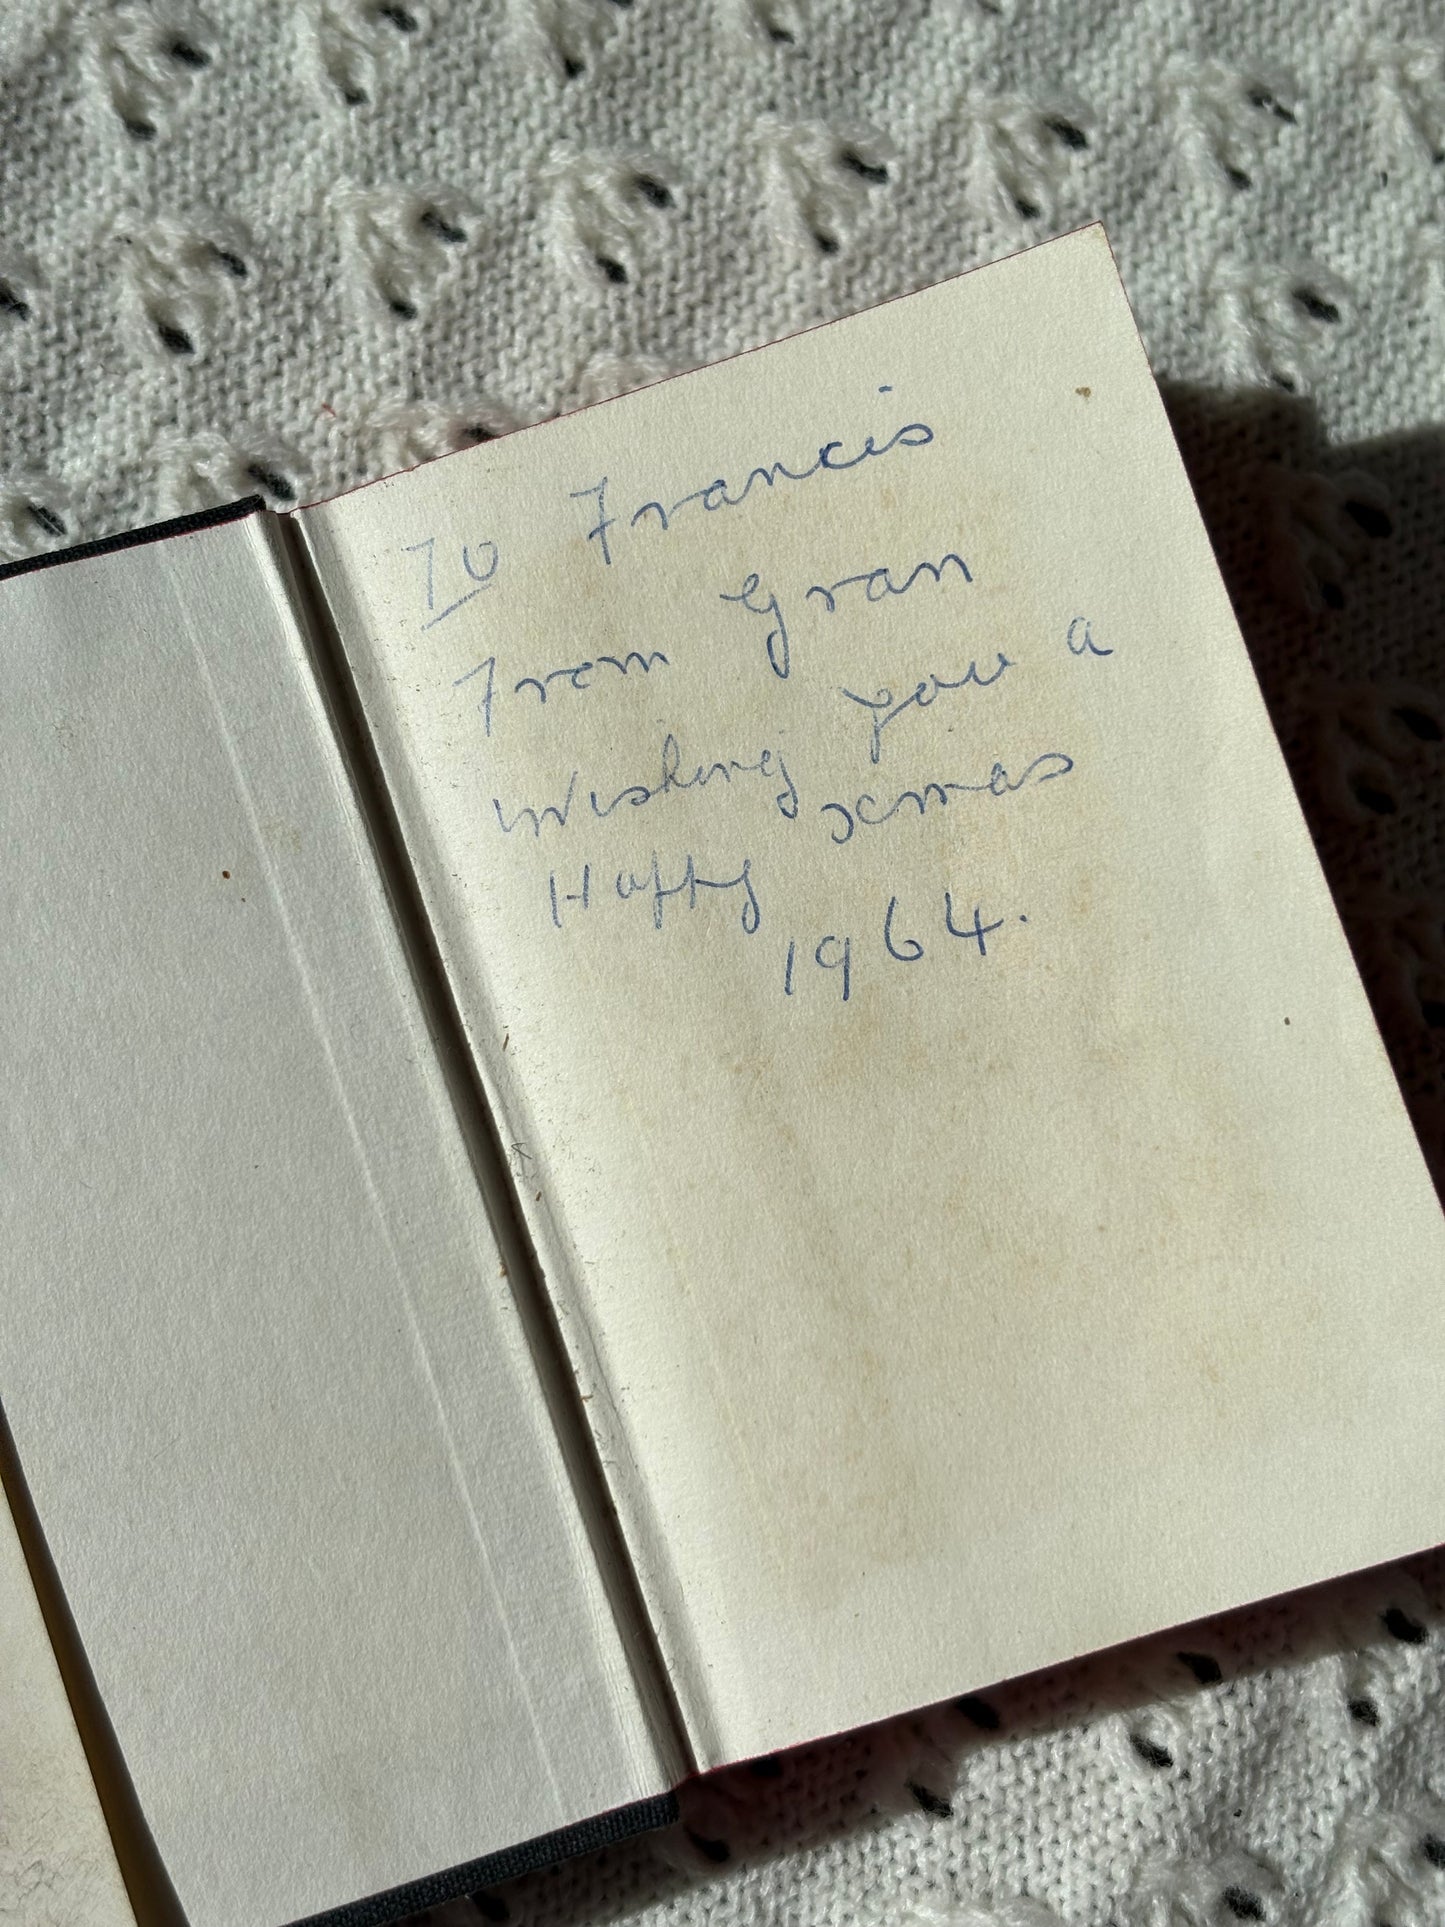 To Francis
From Gran
Wishing you a
Happy xmas
1964.